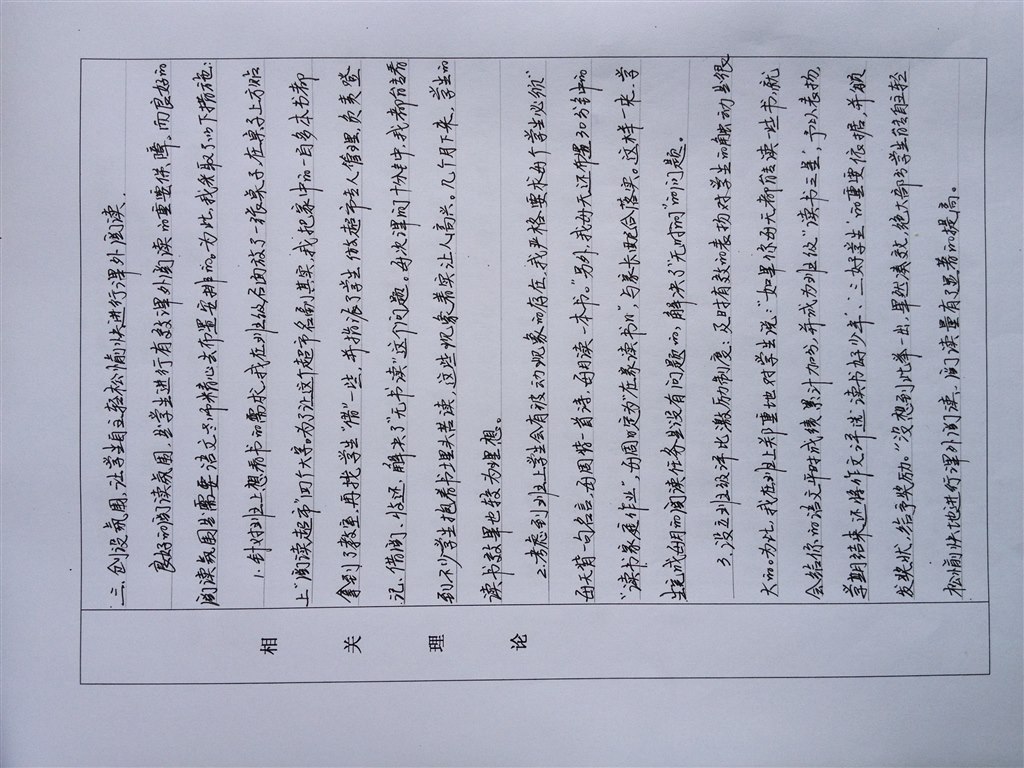 相关理论
三、创设氛围,让学生自主轻松愉快进行课外阅读.
良好的阅读氛围,是学生进行有效课外阅读的重要保障。而良好的
阅读氛围是需要语文老师精心去布置安排的。为此,我采取了以下措施:
1. 针对班上想看书的需求,我在班级后面放了一张桌子,在桌子上方贴
上"阅读超市"四个大字。为了让这个超市名副其实,我把家中的一百多本书都
拿到了教室,再找学生"借"一些,并指派了学生做超市专人管理,负责登
记、借阅、归还,解决了"无书读"这个问题。每次课间十分钟中,我都能看
到不少学生抱着书埋头苦读,这些现象着实让人高兴。几个月来,学生的
读书效果也较为理想。
2. 考虑到班上学生会有被动现象的存在,我严格要求每个学生必须"
每天背一句名言,每周背一首诗,每月读一本书。"另外,我每天还布置30分钟的
"读书家庭作业",每周固定为"在家读书"与家长配合落实。这样一来,学
生完成每月的阅读任务是没有问题的,解决了"无时间"的问题。
3、设立班级评比激励制度:及时有效的表扬对学生的触动是很
大的。为此,我在班上郑重地对学生说:"如果你每天都能读一些书,就
会给你的语文平时成绩累计加分,并成为班级"读书之星",予以表扬,
学期结束还将作文评选"读书好少年"、"三好学生"的重要依据,并颁
发奖状,给予奖励。"没想到此举一出,果然凑效,绝大部分学生能自主轻
松愉快地进行课外阅读,阅读量有了显著的提高。